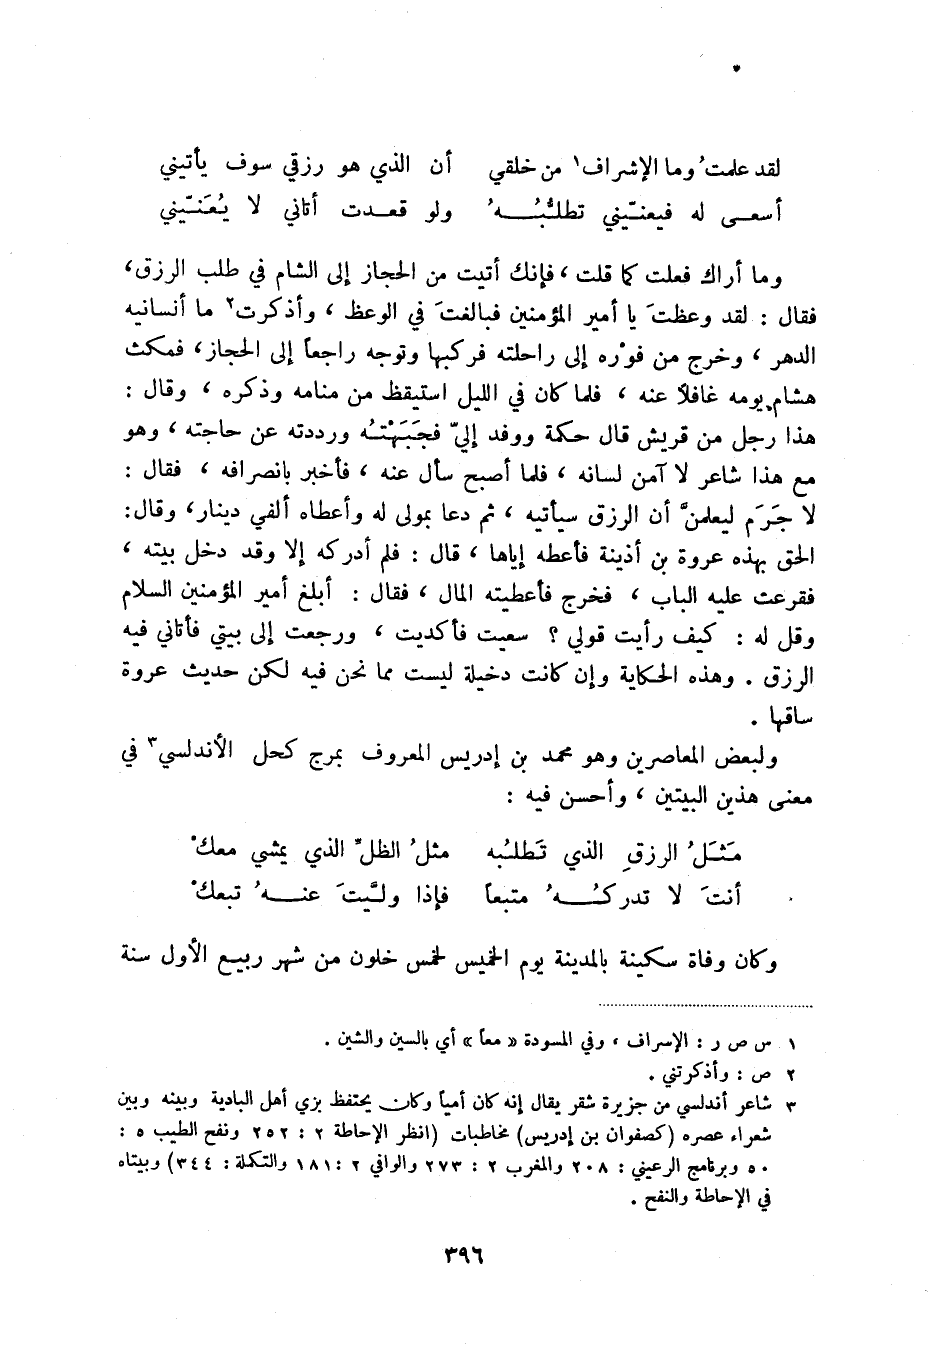 لقد علمتُ وما الإشراف١ من خلقي أن الذي هو رزقي سوف يأتيني
أسعـى له فيعنّيني تطلّبُـــهُ ولو قعـدت أتاني لا يُعَنـّيني
وما أراك فعلت كما قلت ، فإنك أتيت من الحجاز إلى الشام في طلب الرزق،
فقال : لقد وعظتَ يا أمير المؤمنين فبالغتَ في الوعظ ، وأذكرت٢ ما أنسانيه
الدهر ، وخرج من فوْره إلى راحلته فركبها وتوجه راجعاً إلى الحجاز، فمكث
هشام يومه غافلاً عنه ، فلما كان في الليل استيقظ من منامه وذكره ، وقال :
هذا رجل من قريش قال حكمة ووفد إليّ فجَبَهْتُه ورددته عن حاجته ، وهو
مع هذا شاعر لا آمن لسانه ، فلما أصبح سأل عنه ، فأخبر بانصرافه ، فقال :
لا جَرَم ليعلمنَّ أن الرزق سيأتيه ، ثم دعا بمولى له وأعطاه ألفي دينار، وقال:
الحق بهذه عروة بن أذينة فأعطه إياها ، قال : فلم أدركه إلا وقد دخل بيته ،
فقرعت عليه الباب ، فخرج فأعطيته المال ، فقال : أبلغ أمير المؤمنين السلام
وقل له : كيف رأيت قولي ؟ سعيت فأكديت ، ورجعت إلى بيتي فأتاني فيه
الرزق . وهذه الحكاية وإن كانت دخيلة ليست مما نحن فيه لكن حديث عروة
ساقها .
ولبعض المعاصرين وهو محمد بن إدريس المعروف بمرج كحل الأندلسي٣ في
معنى هذين البيتين ، وأحسن فيه :
مَثَلُ الرزقِ الذي تَطلبُه مثلُ الظلّ الذي يمشي معكْ
أنتَ لا تدركُـــهُ متبعاً فإذا ولَّيتَ عنـــهُ تبعكْ
وكان وفاة سكينة بالمدينة يوم الخميس لخمس خلون من شهر ربيع الأول سنة
١ س ص ر : الإسراف ، وفي المسودة « معاً » أي بالسين والشين .
٢ ص : وأذكرتني .
٣ شاعر أندلسي من جزيرة شقر يقال إنه كان أمياً وكان يحتفظ بزي أهل البادية وبينه وبين
شعراء عصره (كصفوان بن إدريس) مخاطبات (انظر الإحاطة ٢ : ٢٥٢ ونفح الطيب ٥ :
٥٠ وبرنامج الرعيني : ٢٠٨ والمغرب ٢ : ٢٧٣ والوافي ٢ : ١٨١ والتكملة : ٣٤٤) وبيتاه
في الإحاطة والنفح .
٣٩٦